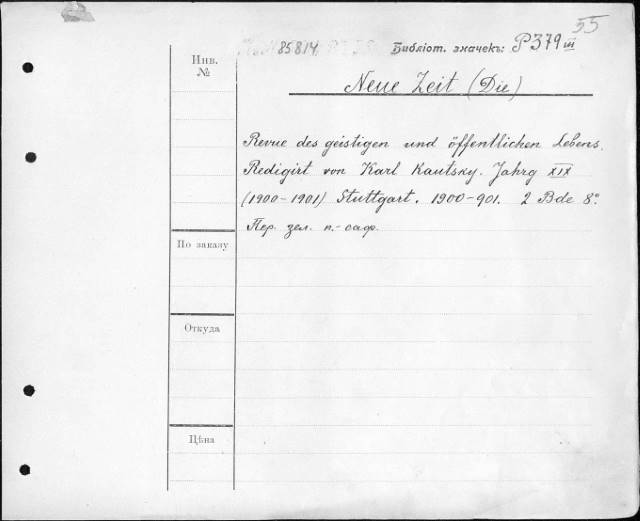 55
85814
Библіот. значекъ: P379 III
Инв.
№
Neue Zeit (Die)
Revue des geistigen und öffentlichen Lebens.
Redigirt von Karl Kautsky. Jahrg XIX
(1900-1901) Stuttgart. 1900-901. 2 Bde 8º.
Пер. зел. п.-саф.
По заказу
Откуда
Цѣна